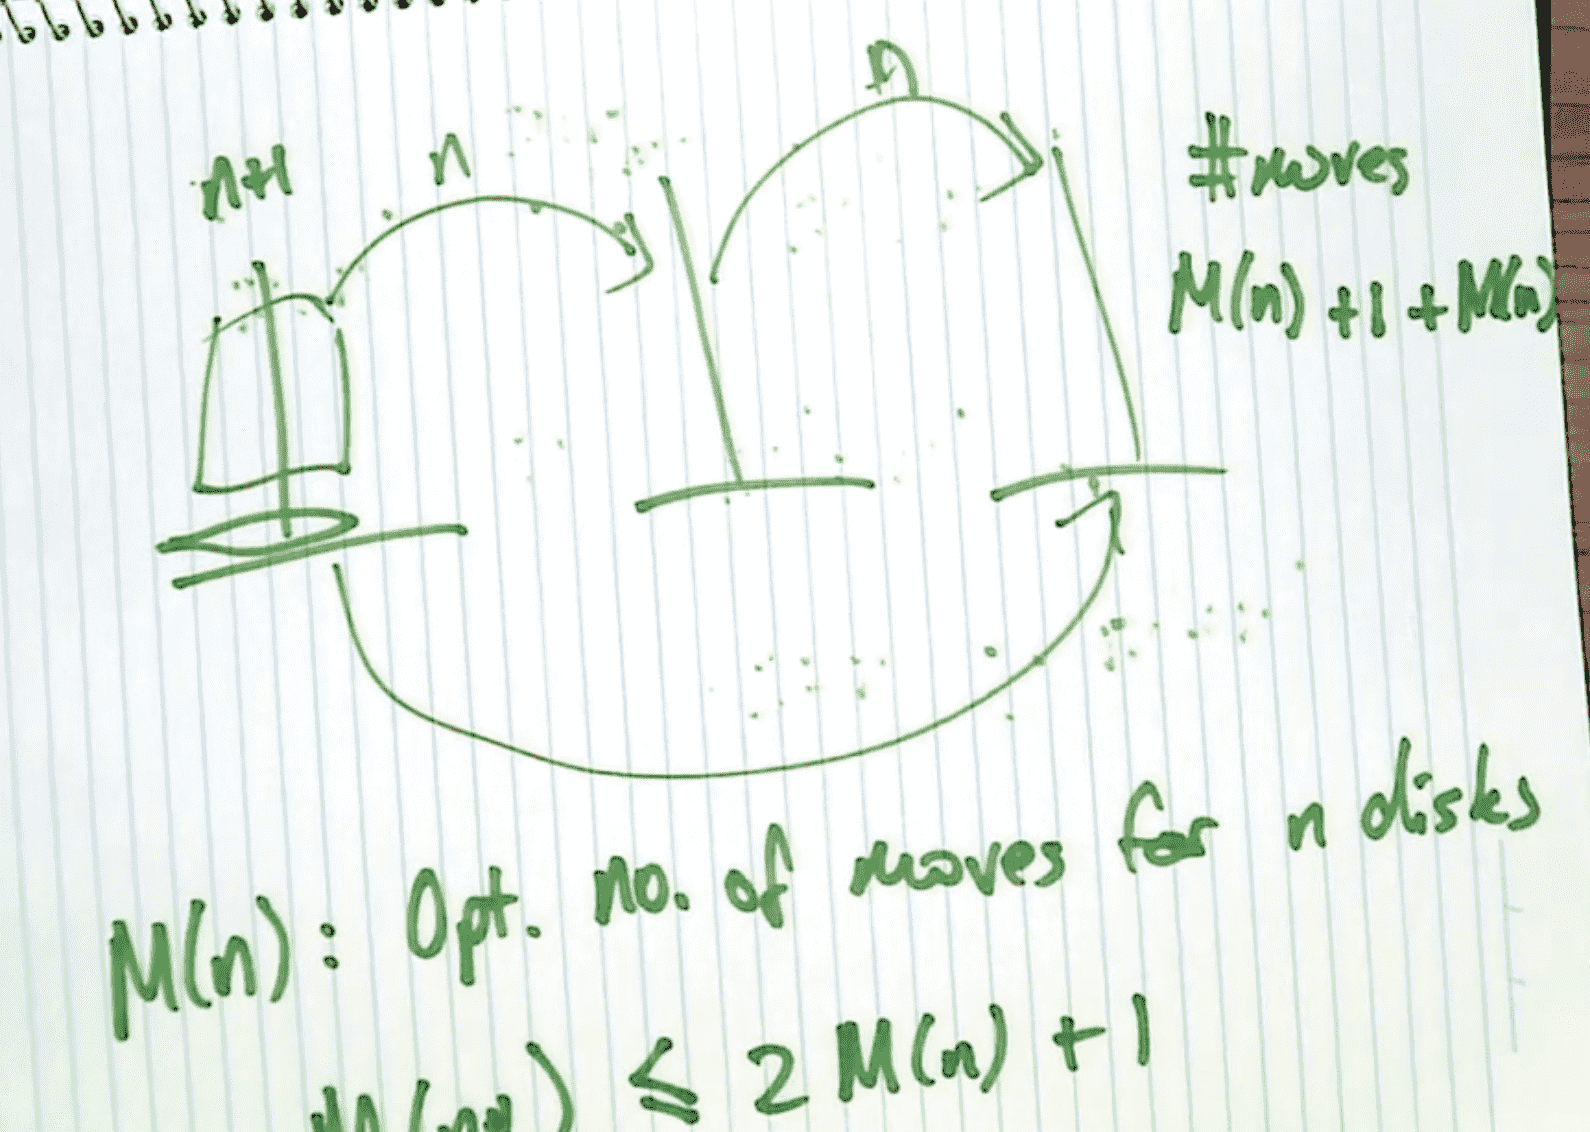 n
n+1 n
#moves
M(n) +1 +M(n)
M(n): Opt. no. of moves for n disks
≤ 2 M(n) + 1